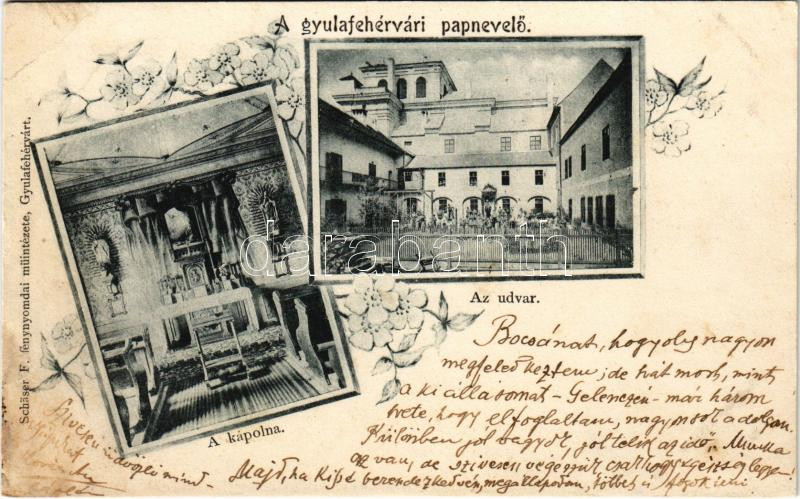 A gyulafehérvári papnevelő.
Schäser F. fénynyomdai müintézete, Gyulafehérvárt.
darabanth
Az udvar.
A kápolna.
Bocsánat, hogy oly nagyon
megfeledkeztem, de hát most, mint
a ki állásomat – Gelenczen – már három
hete, hogy elfoglaltam, nagyon sok a dolgom.
Különben jól vagyok, jól telik az idő, Munka
az van, de szivesen végezzük csak hogy egészség legyen
Majd, ha kissé berendezkedvén, megállapodom, többet is fogok írni
Szivesen üdvözli mind-